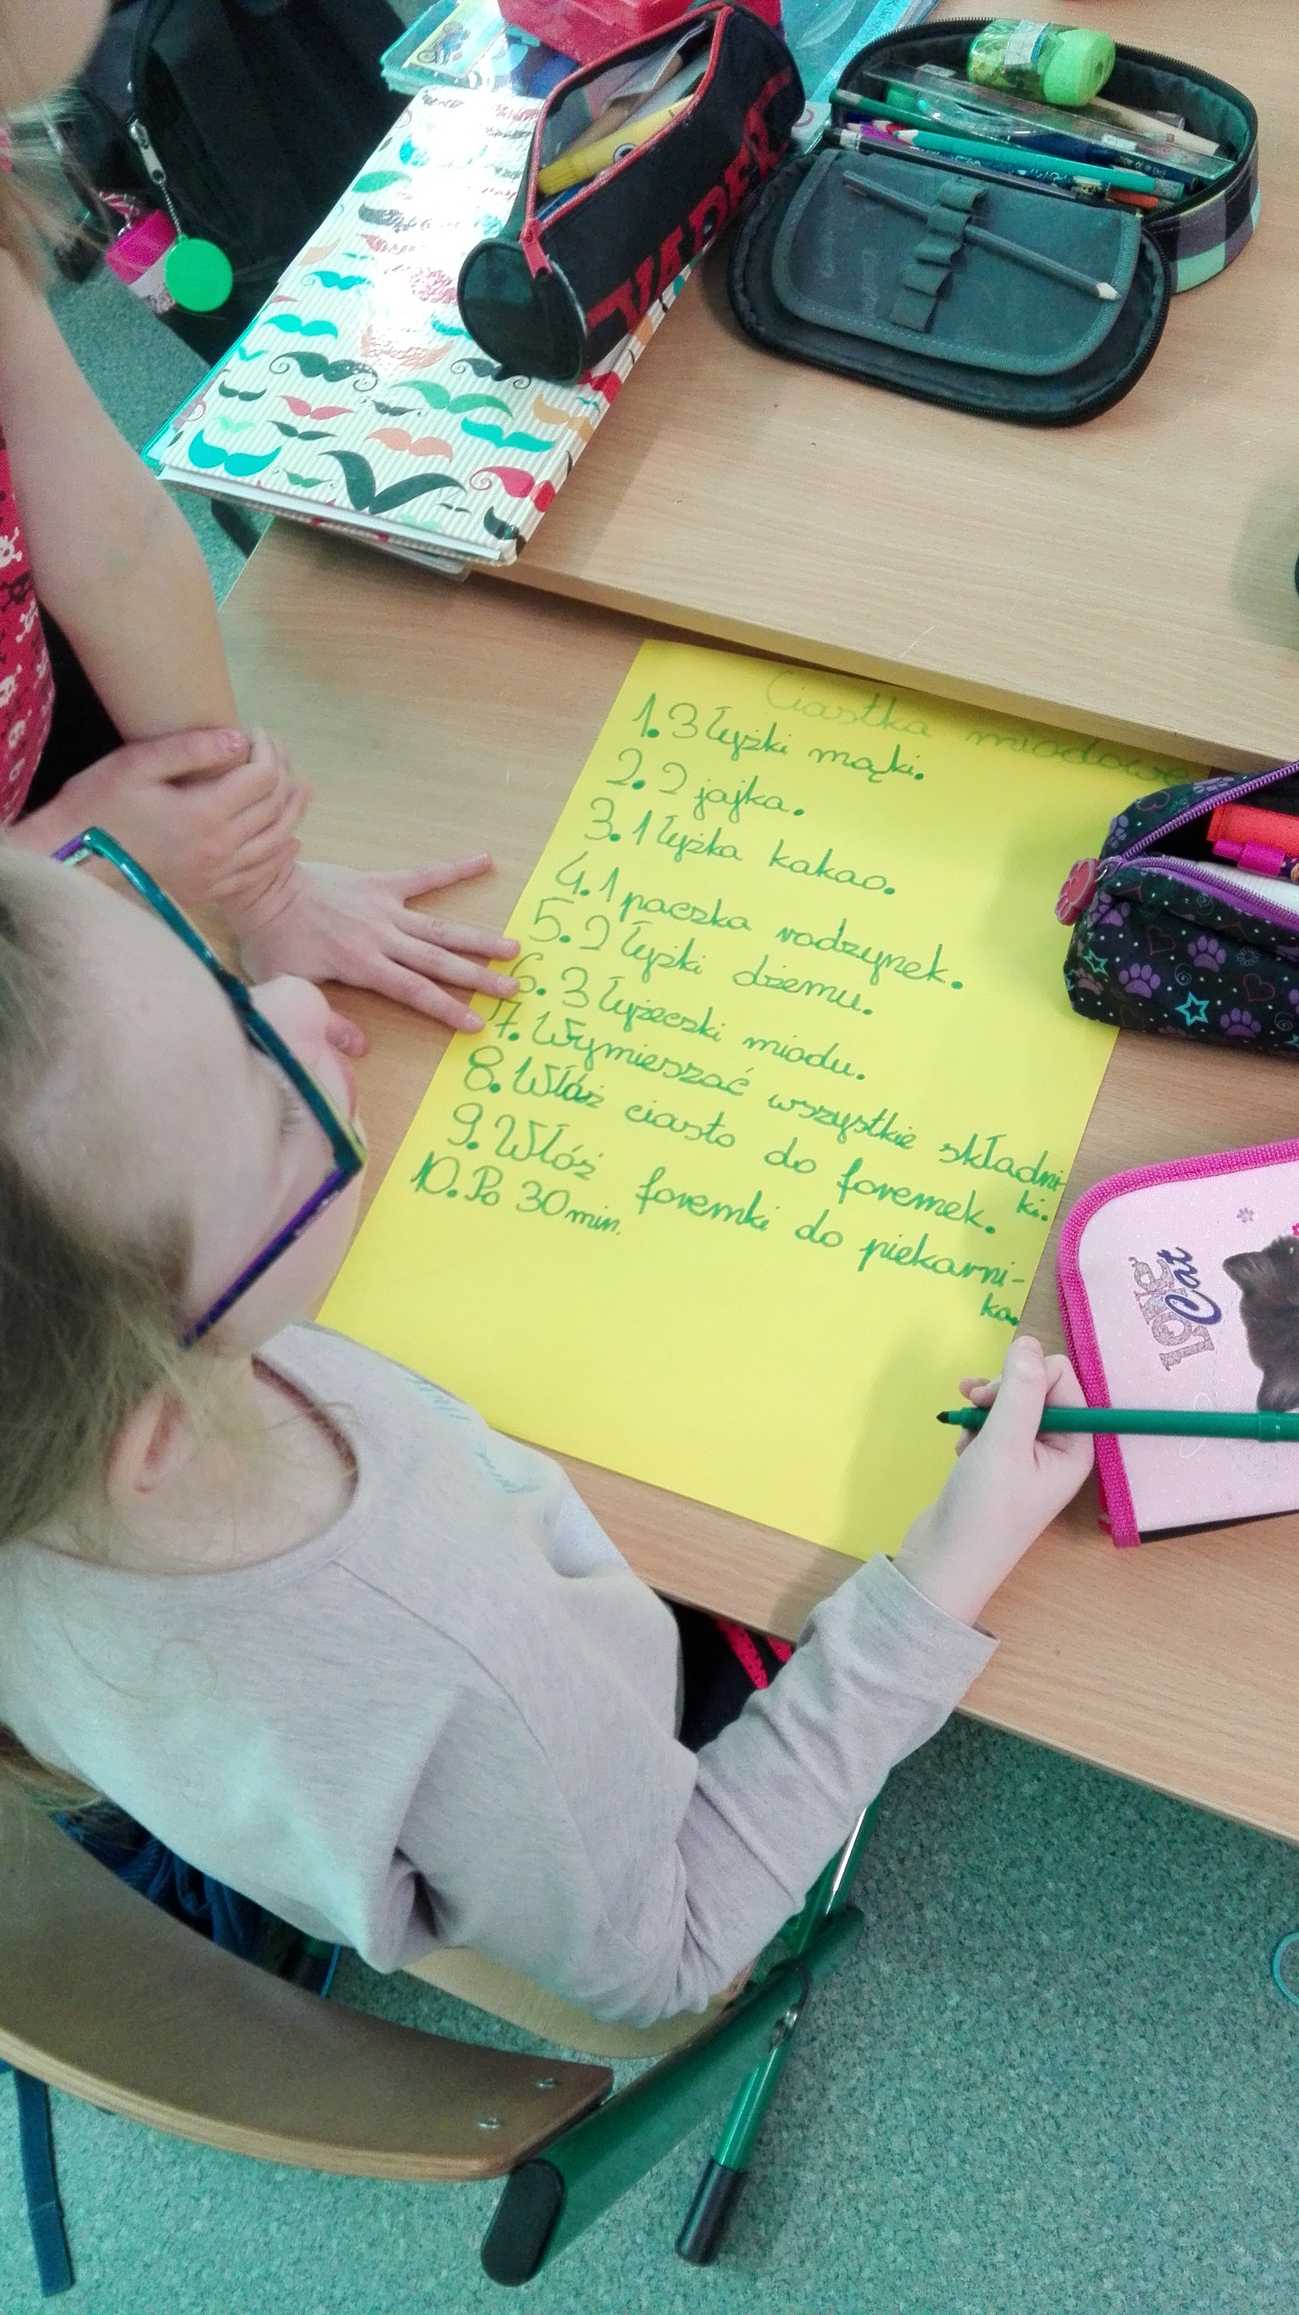 Ciastka miodowe
1. 3 łyżki mąki.
2. 2 jajka.
3. 1 łyżka kakao.
4. 1 paczka rodzynek.
5. 2 łyżki dżemu.
6. 3 łyżeczki miodu.
7. Wymieszać wszystkie składni-
ki.
8. Włóż ciasto do foremek.
9. Włóż foremki do piekarni-
ka.
10. Po 30 min.
LOVE
Cat